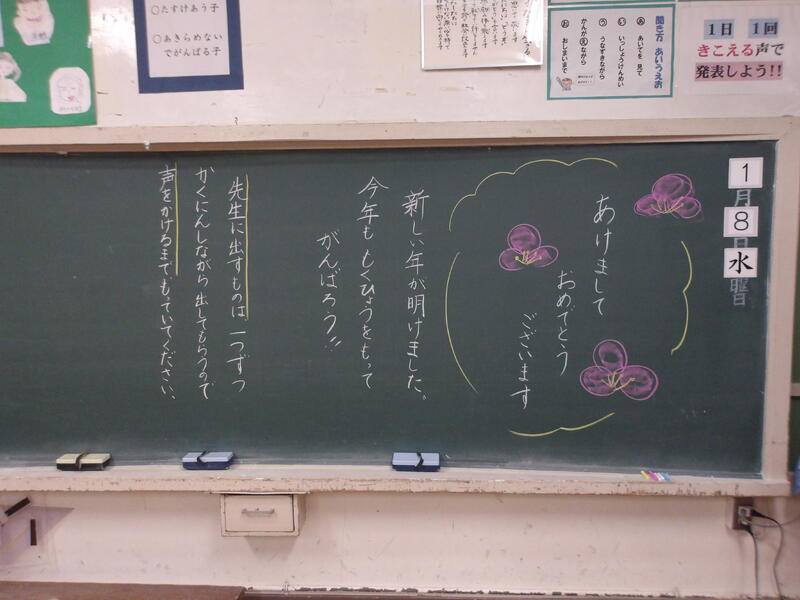 ○たすけあう子
○あきらめない
でがんばる子
聞き方 あいうえお
あ あいてを 見て
い いっしょうけんめい
う うなずきながら
え かんがえながら
お おしまいまで
1日 1回
きこえる声で
発表しよう!!
1月8日水曜日
あけまして
おめでとう
ございます
新しい年が明けました。
今年も もくひょうをもって
がんばろう!!
先生に出すものは 一つずつ
かくにんしながら 出してもらうので
声をかけるまでもっていてください。